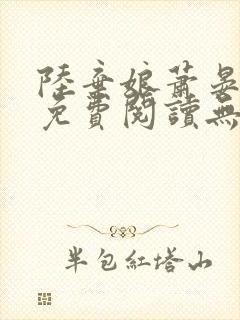 陸棄娘蕭晏
免費閱讀無
半包紅塔山